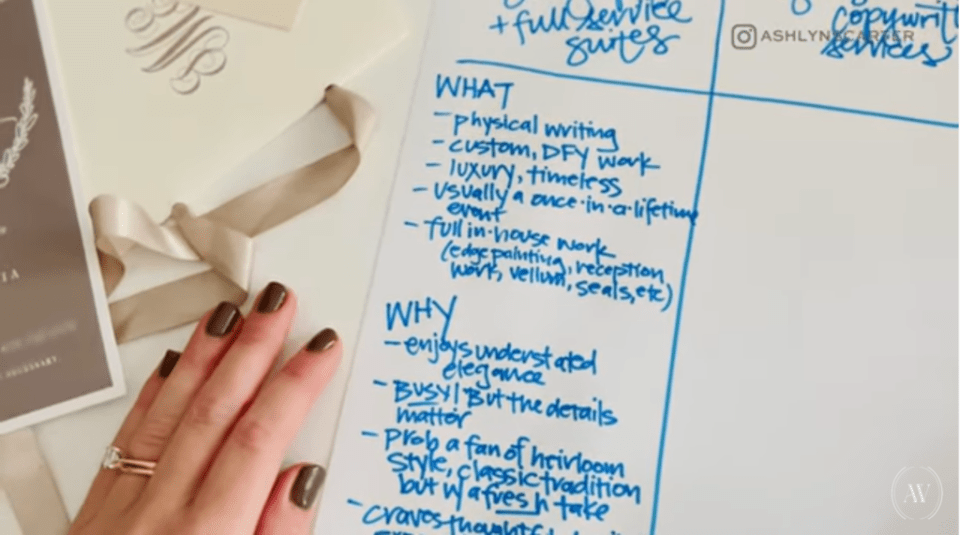 + full service
suites
copywrit
services
ASHLYNSCARTER
WHAT
- physical writing
- custom, DFY work
- luxury, timeless
- usually a once-in-a-lifetime
event
- full in-house work
(edge painting, reception
work, vellum, seals, etc)
WHY
- enjoys understated
elegance
- Busy! But the details
matter
- prob a fan of heirloom
style, classic tradition
but w/ a fresh take
- craves
IA
AW